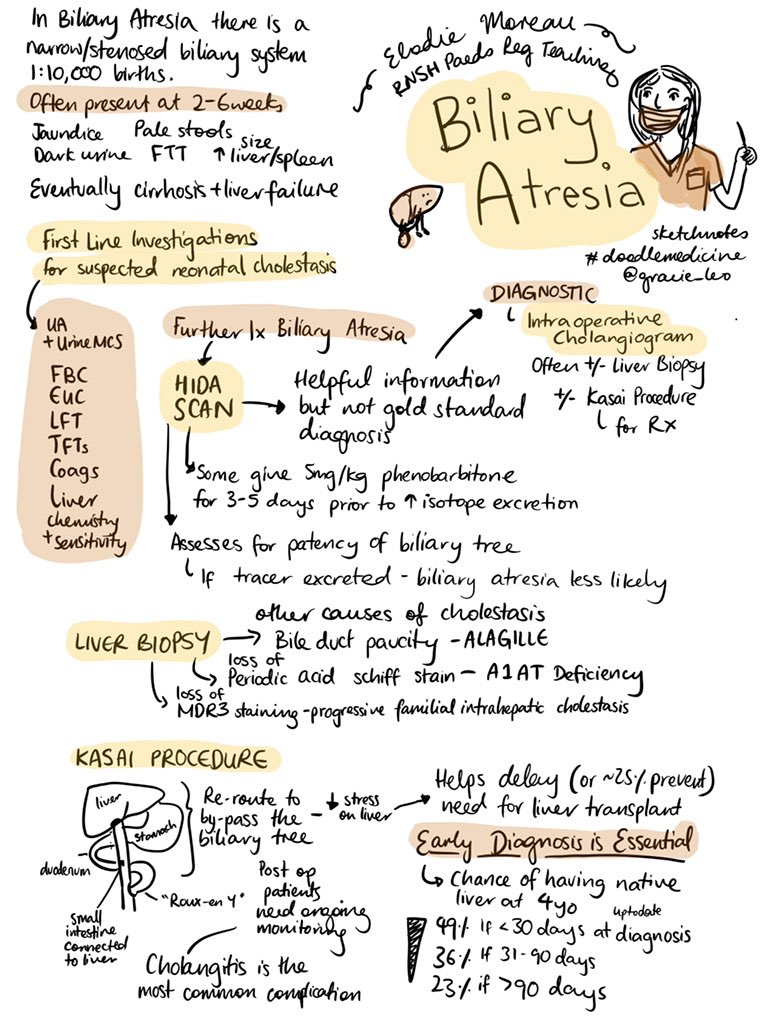 In Biliary Atresia there is a
narrow/stenosed biliary system
1:10,000 births.
Often present at 2-6weeks
Jaundice Pale stools
Dark urine FTT ↑ size liver/spleen
Eventually cirrhosis + liver failure
Elodie Moreau
RNSH Paeds Reg Teaching
Biliary
Atresia
sketchnotes
#doodlemedicine
@gracie_leo
First Line Investigations
for suspected neonatal cholestasis
UA
+ Urine MCS
FBC
EUC
LFT
TFTs
Coags
Liver
chemistry
+ sensitivity
Further Ix Biliary Atresia
HIDA
SCAN
Helpful information
but not gold standard
diagnosis
DIAGNOSTIC
Intraoperative
Cholangiogram
Often +/- Liver Biopsy
+/- Kasai Procedure
for Rx
Some give 5mg/kg phenobarbitone
for 3-5 days prior to ↑ isotope excretion
Assesses for patency of biliary tree
If tracer excreted - biliary atresia less likely
LIVER BIOPSY
other causes of cholestasis
Bile duct paucity - ALAGILLE
loss of
Periodic acid schiff stain - A1AT Deficiency
loss of
MDR3 staining - progressive familial intrahepatic cholestasis
KASAI PROCEDURE
liver
stomach
duodenum
small
intestine
connected
to liver
"Roux-en Y"
Re-route to
by-pass the
biliary tree
↓ stress
on liver
Helps delay (or ~25% prevent)
need for liver transplant
Post op
patients
need ongoing
monitoring
Cholangitis is the
most common complication
Early Diagnosis is Essential
Chance of having native
liver at 4yo
uptodate
49% if <30 days at diagnosis
36% if 31-90 days
23% if >90 days